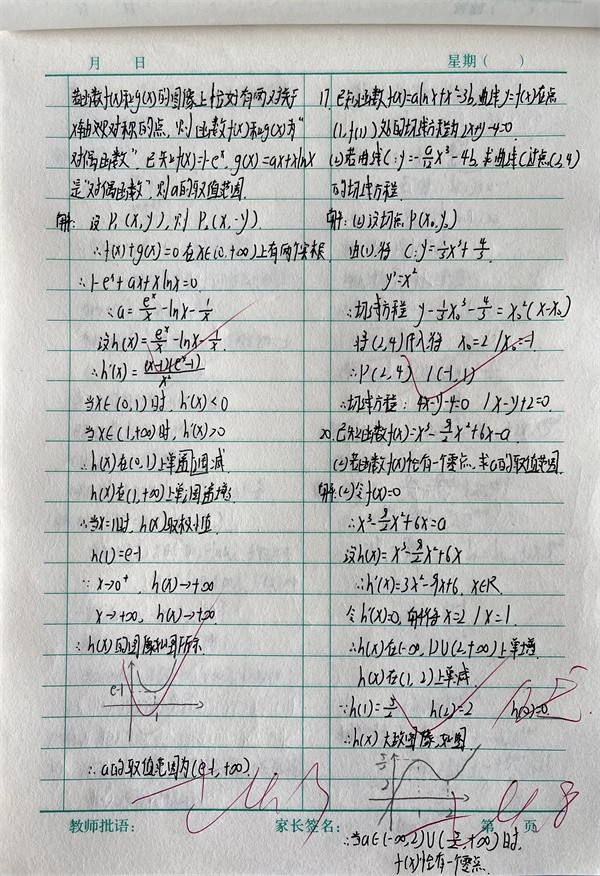 月 日
星期( )
若函数f(x)和g(x)的图像上恰好有两对关于
x轴对称的点,则函数f(x)和g(x)为“
对偶函数”.已知f(x)=1-eˣ,g(x)=ax+xlnx
是“对偶函数”,则a的取值范围.
解:设P₁(x,y),则P₂(x,-y).
∴f(x)+g(x)=0在x∈(0,+∞)上有两个实根
∴1-eˣ+ax+xlnx=0.
∴a=eˣ/x-lnx-1/x
设h(x)=eˣ/x-lnx-1/x.
∴h'(x)=(x-1)(eˣ-1)/x²
当x∈(0,1)时,h'(x)<0
当x∈(1,+∞)时,h'(x)>0
∴h(x)在(0,1)上单调递减
h(x)在(1,+∞)上单调递增
∴当x=1时,h(x)取极小值.
h(1)=e-1
∵x→0⁺,h(x)→+∞
x→+∞,h(x)→+∞
∴h(x)的图像如图所示
e-1
1
∴a的取值范围为(e-1,+∞).
17.已知函数f(x)=alnx+x²-3b,曲线y=f(x)在点
(1,f(1))处的切线方程为2x+y-4=0
(2)若曲线C:y=-a/12x³-4b,求曲线C过点(2,4)
的切线方程.
解:(2)设切点P(x₀,y₀)
由(1)得 C:y=1/3x³+4/3.
y'=x²
∴切线方程 y-1/3x₀³-4/3=x₀²(x-x₀)
将(2,4)代入得 x₀=2/x₀=-1
∴P(2,4)/(-1,1)
∴切线方程:4x-y-4=0/x-y+2=0.
20.已知函数f(x)=x³-9/2x²+6x-a
(2)若函数f(x)恰有一个零点,求a的取值范围.
解:(2)令f(x)=0
∴x³-9/2x²+6x=a
设h(x)=x³-9/2x²+6x
∴h'(x)=3x²-9x+6,x∈R.
令h'(x)=0,解得x=2/x=1.
∴h(x)在(-∞,1)∪(2,+∞)上单增
h(x)在(1,2)上单减
∵h(1)=5/2 h(2)=2 h(0)=0
∴h(x)大致图像如图
5/2
2
1
2
∴当a∈(-∞,2)∪(5/2,+∞)时.
f(x)恰有一个零点.
教师批语: 家长签名: 第 页